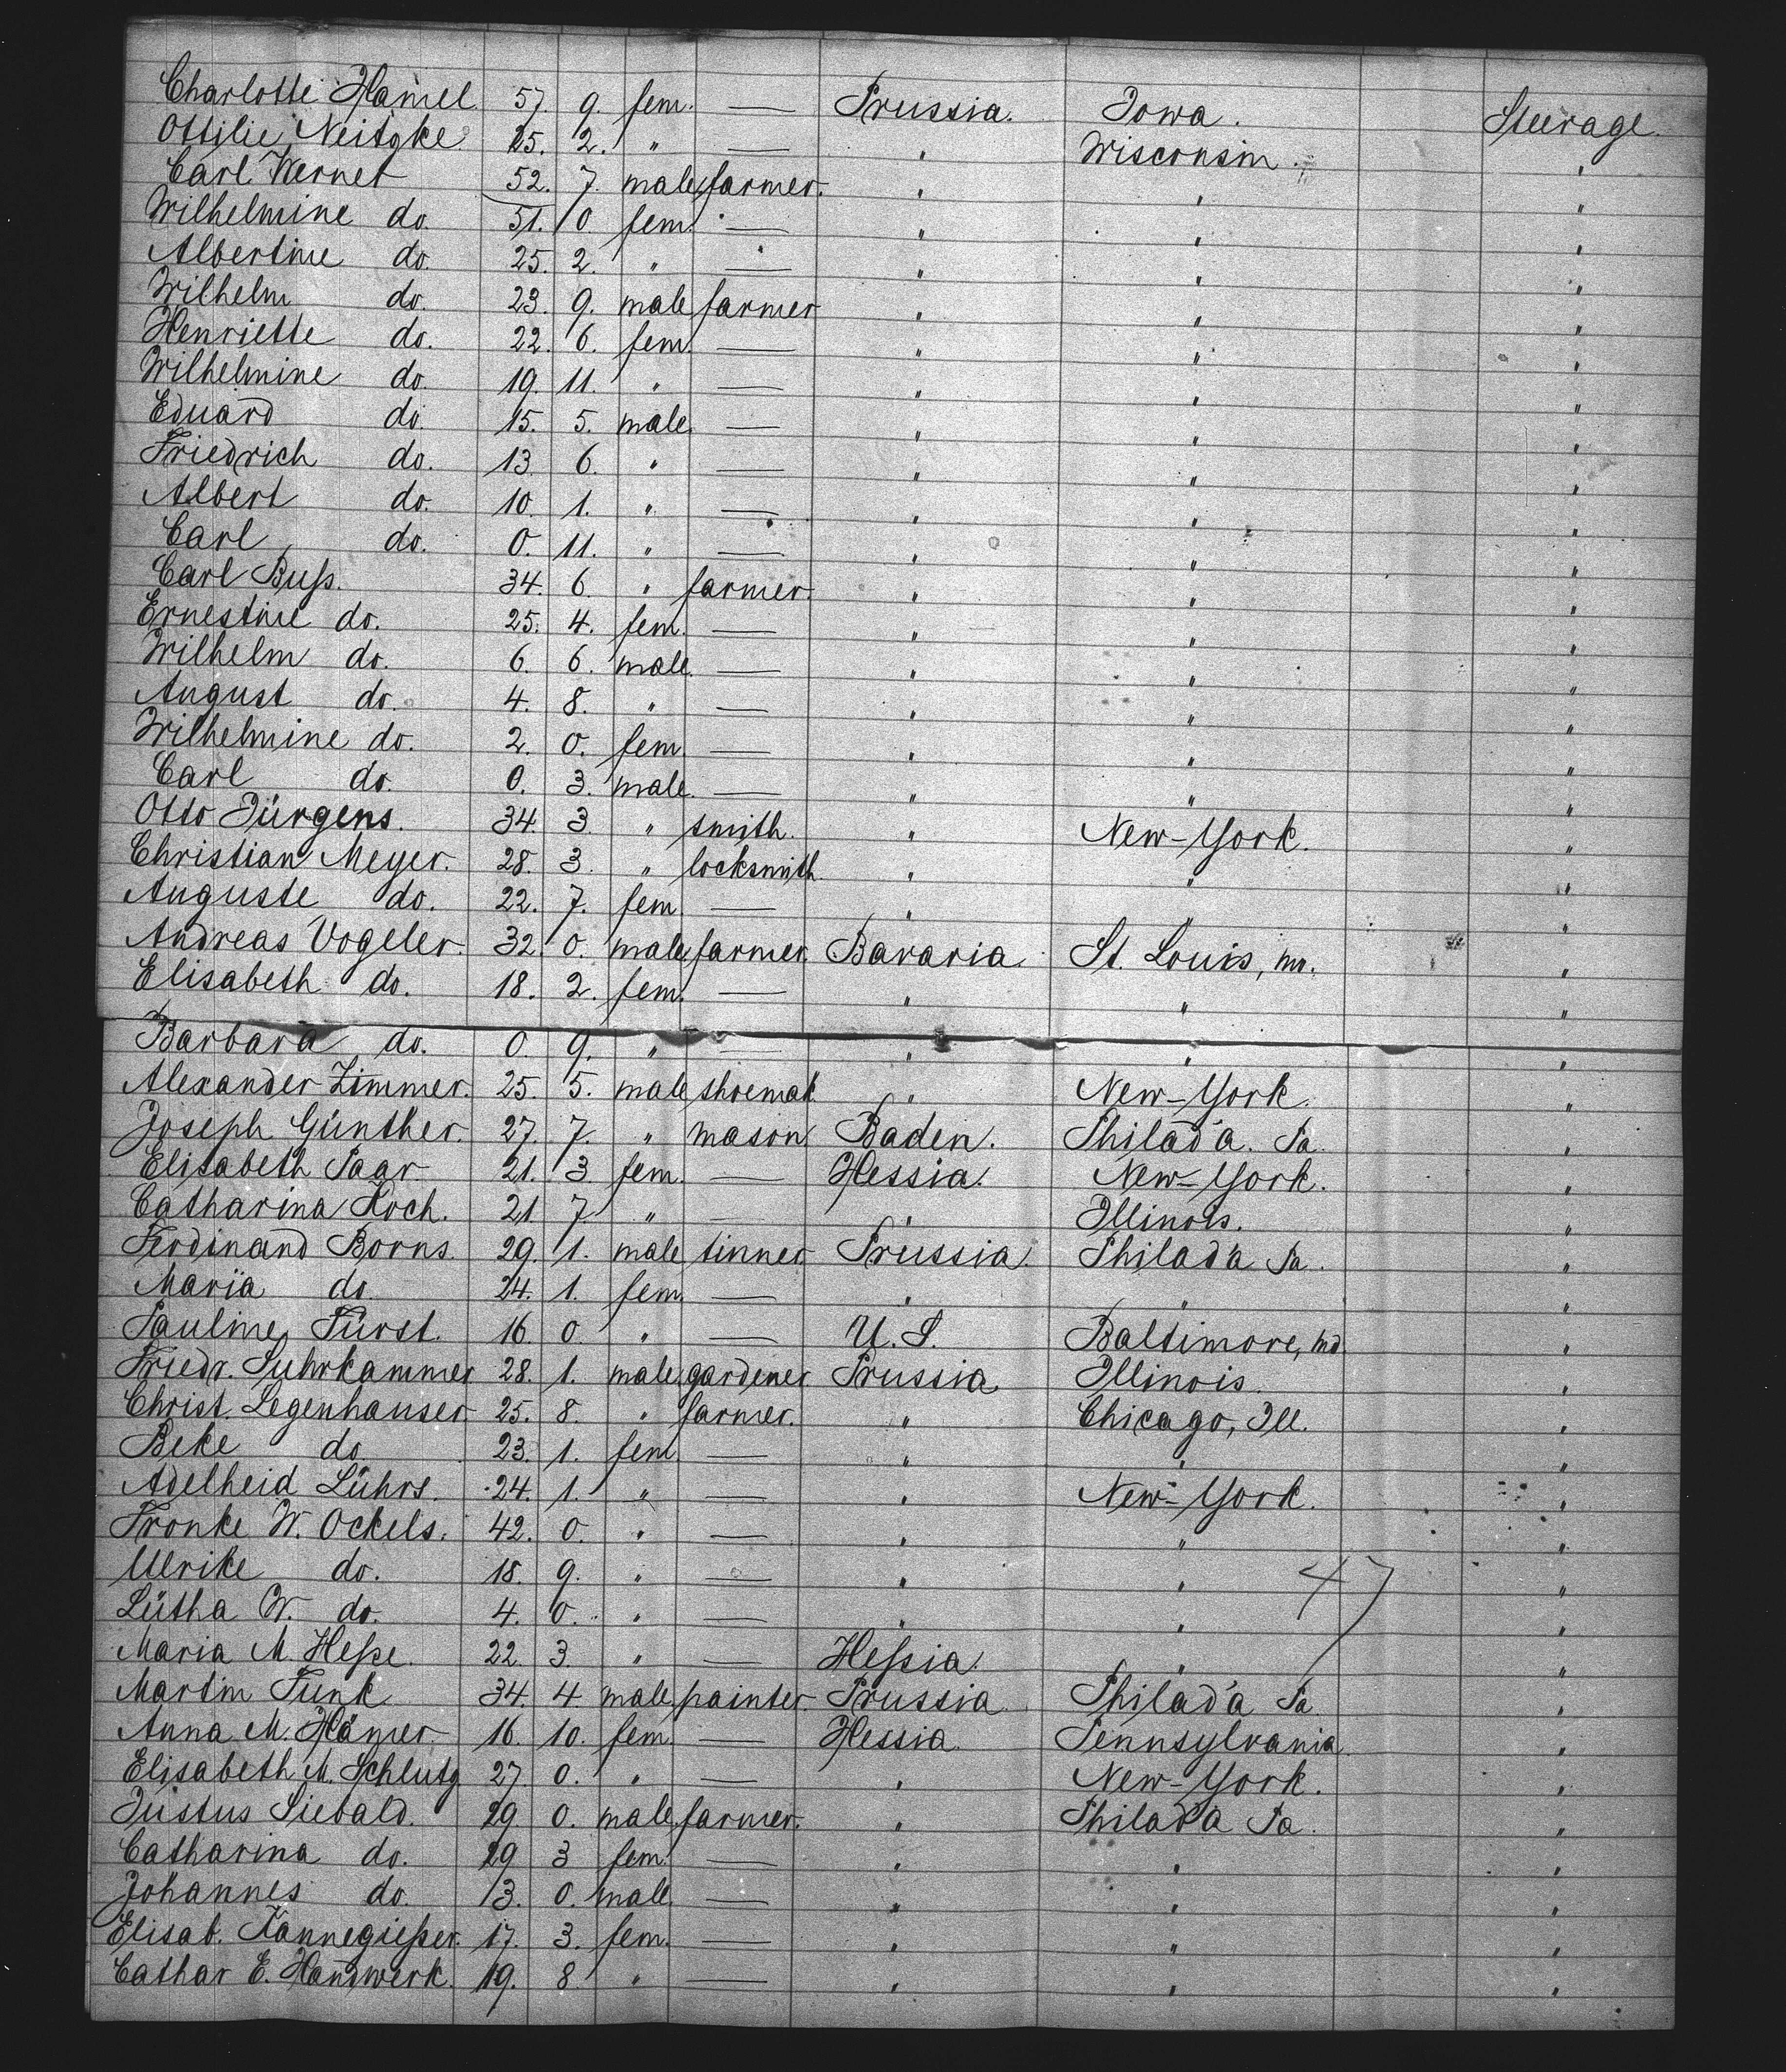 Charlotte Hamel 57. 9. fem. — Prussia. Iowa. Steerage.
Ottilie Neitzke 25. 2. " — " Wisconsin. "
Carl Wernet 52. 7. male farmer. " " "
Wilhelmine do. 51. 0. fem. — " " "
Albertine do. 25. 2. " — " " "
Wilhelm do. 23. 9. male farmer " " "
Henriette do. 22. 6. fem. — " " "
Wilhelmine do. 19. 11. " — " " "
Eduard do. 15. 5. male. — " " "
Friedrich do. 13. 6. " — " " "
Albert do. 10. 1. " — " " "
Carl do. 0. 11. " — " " "
Carl Buſs. 34. 6. " farmer. " " "
Ernestine do. 25. 4. fem. — " " "
Wilhelm do. 6. 6. male. — " " "
August do. 4. 8. " — " " "
Wilhelmine do. 2. 0. fem. — " " "
Carl do. 0. 3. male. — " " "
Otto Jürgens. 34. 3. " smith. " New-York. "
Christian Meyer. 28. 3. " locksmith. " " "
Auguste do. 22. 7. fem. — " " "
Andreas Vogeler. 32. 0. male farmer. Bavaria. St. Louis, Mo. "
Elisabeth do. 18. 2. fem. — " " "
Barbara do. 0. 9. " — " " "
Alexander Zimmer. 25. 5. male shoemak. " New-York. "
Joseph Günther. 27. 7. " mason Baden. Philad'a. Pa. "
Elisabeth Paar. 21. 3. fem. — Hessia. New-York. "
Catharina Koch. 21. 7. " — " Illinois. "
Ferdinand Borns. 29. 1. male tinner. Prussia. Philad'a Pa. "
Maria do. 24. 1. fem. — " " "
Pauline Fürst. 16. 0. " — U.S. Baltimore, Md. "
Friedr. Suhrkammer 28. 1. male gardener. Prussia Illinois. "
Christ. Segenhauser. 25. 8. " farmer. " Chicago, Ill. "
Beke do. 23. 1. fem. — " " "
Adelheid Lührs. 24. 1. " — " New-York. "
Fronke W. Ockels. 42. 0. " — " " "
Ulrike do. 18. 9. " — " " "
Lütha W. do. 4. 0. " — " " "
47
Maria M. Heſse. 22. 3. " — Heſsia. " "
Martin Funk 34. 4. male painter. Prussia. Philad'a Pa. "
Anna M. Hämer. 16. 10. fem. — Hessia. Pennsylvania. "
Elisabeth M. Schlutz 27. 0. " — " New-York. "
Justus Siebald. 29. 0. male farmer. " Philad'a Pa. "
Catharina do. 29 3 fem. — " " "
Johannes do. 3. 0. male. — " " "
Elisab. Kannegieſser. 17. 3. fem. — " " "
Cathar E. Handwerk. 19. 8. " — " " "